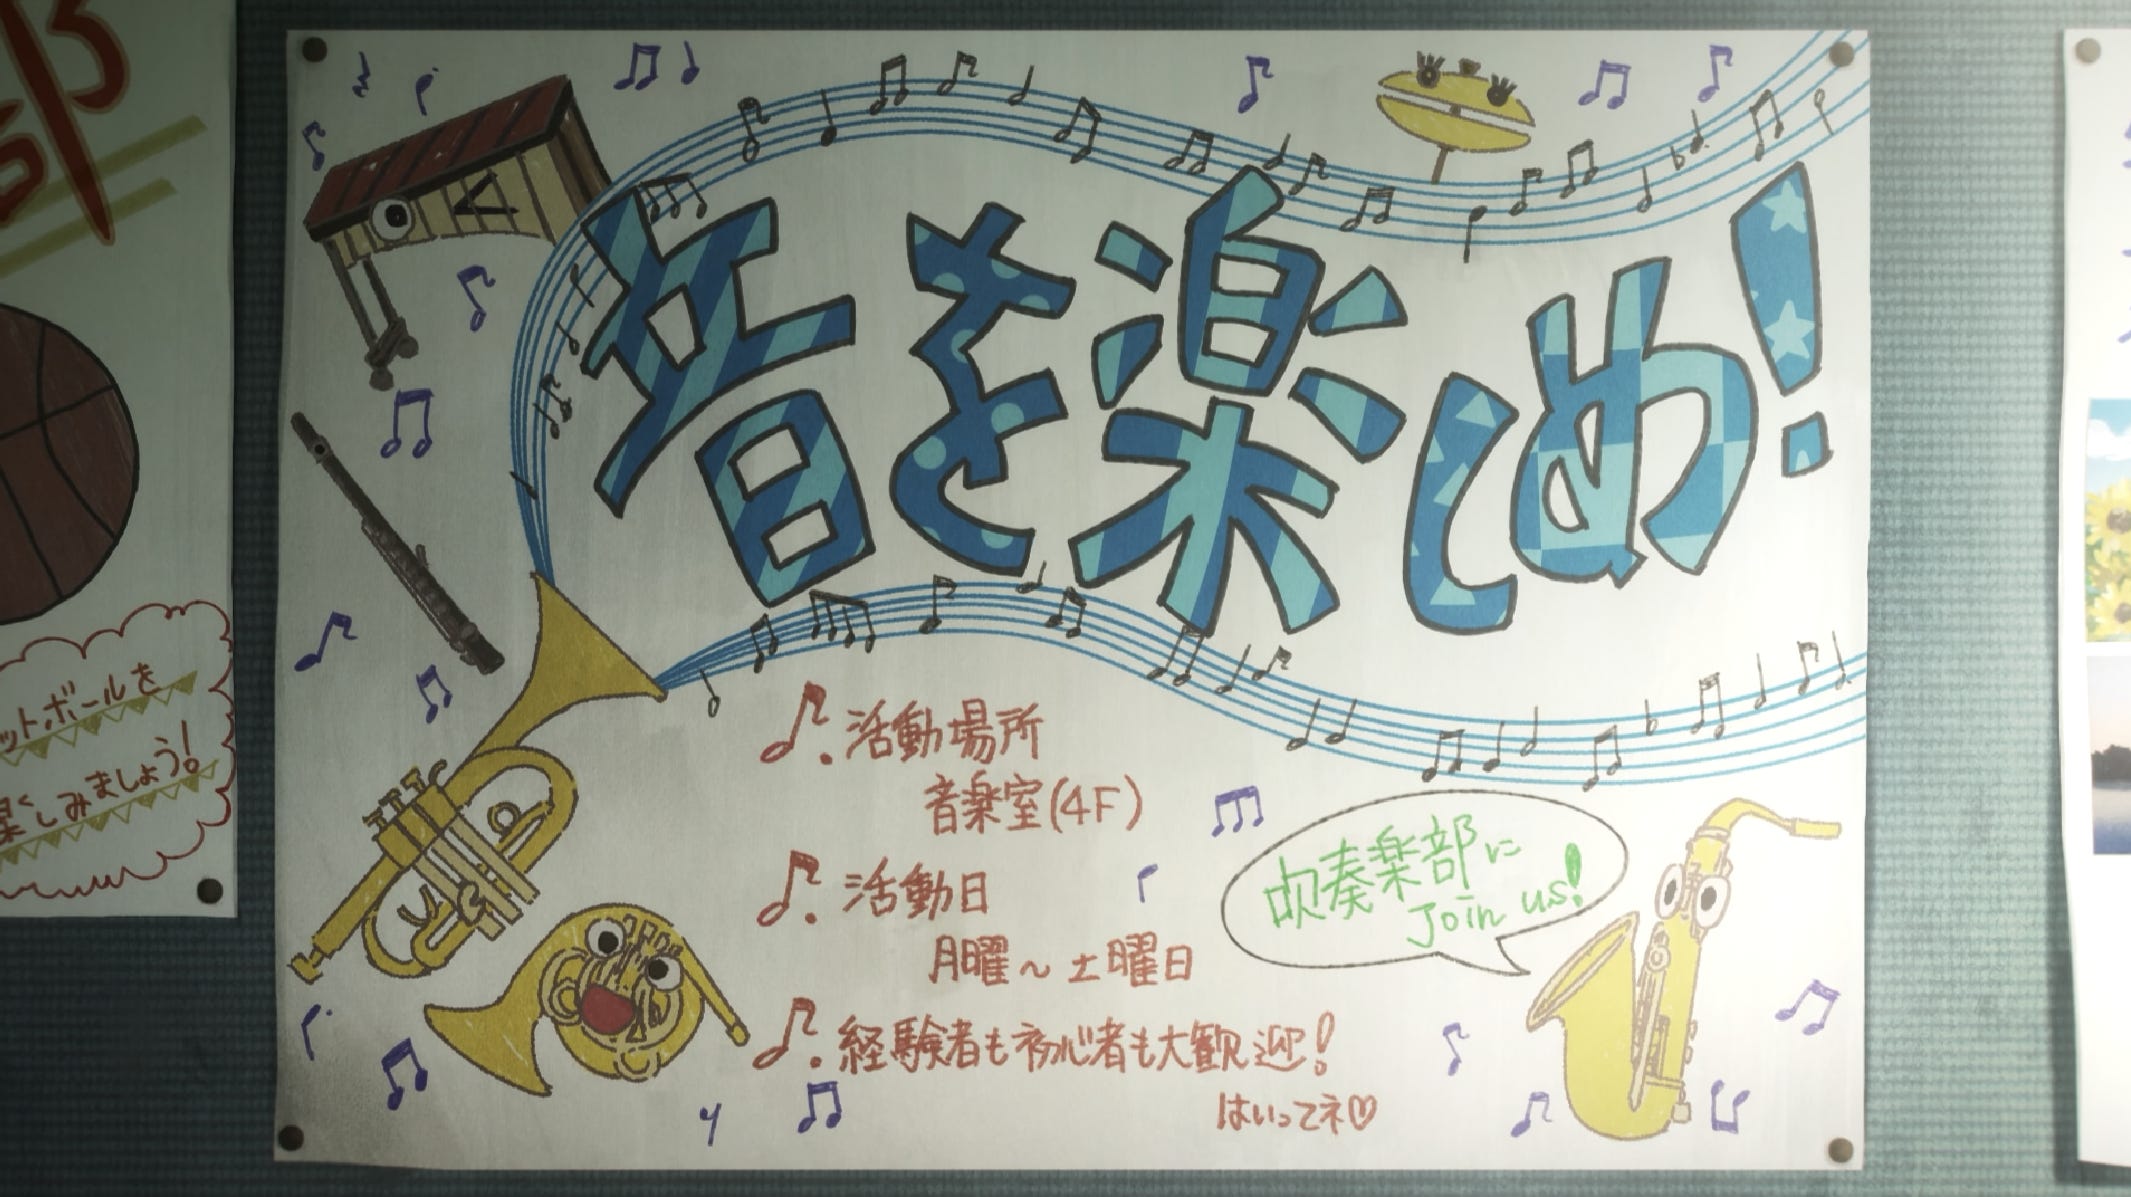 部
ットボールを
楽しみましょう!
音を楽しめ!
活動場所
音楽室(4F)
活動日
月曜~土曜日
経験者も初心者も大歓迎!
はいってネ♡
吹奏楽部に
Join us!